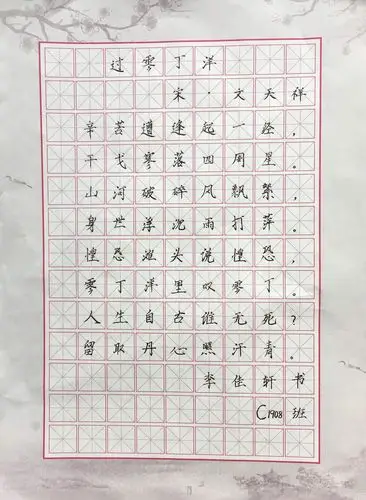 过零丁洋
宋·文天祥
辛苦遭逢起一经，
干戈寥落四周星。
山河破碎风飘絮，
身世浮沉雨打萍。
惶恐滩头说惶恐，
零丁洋里叹零丁。
人生自古谁无死？
留取丹心照汗青。
李佳轩书
C1908班